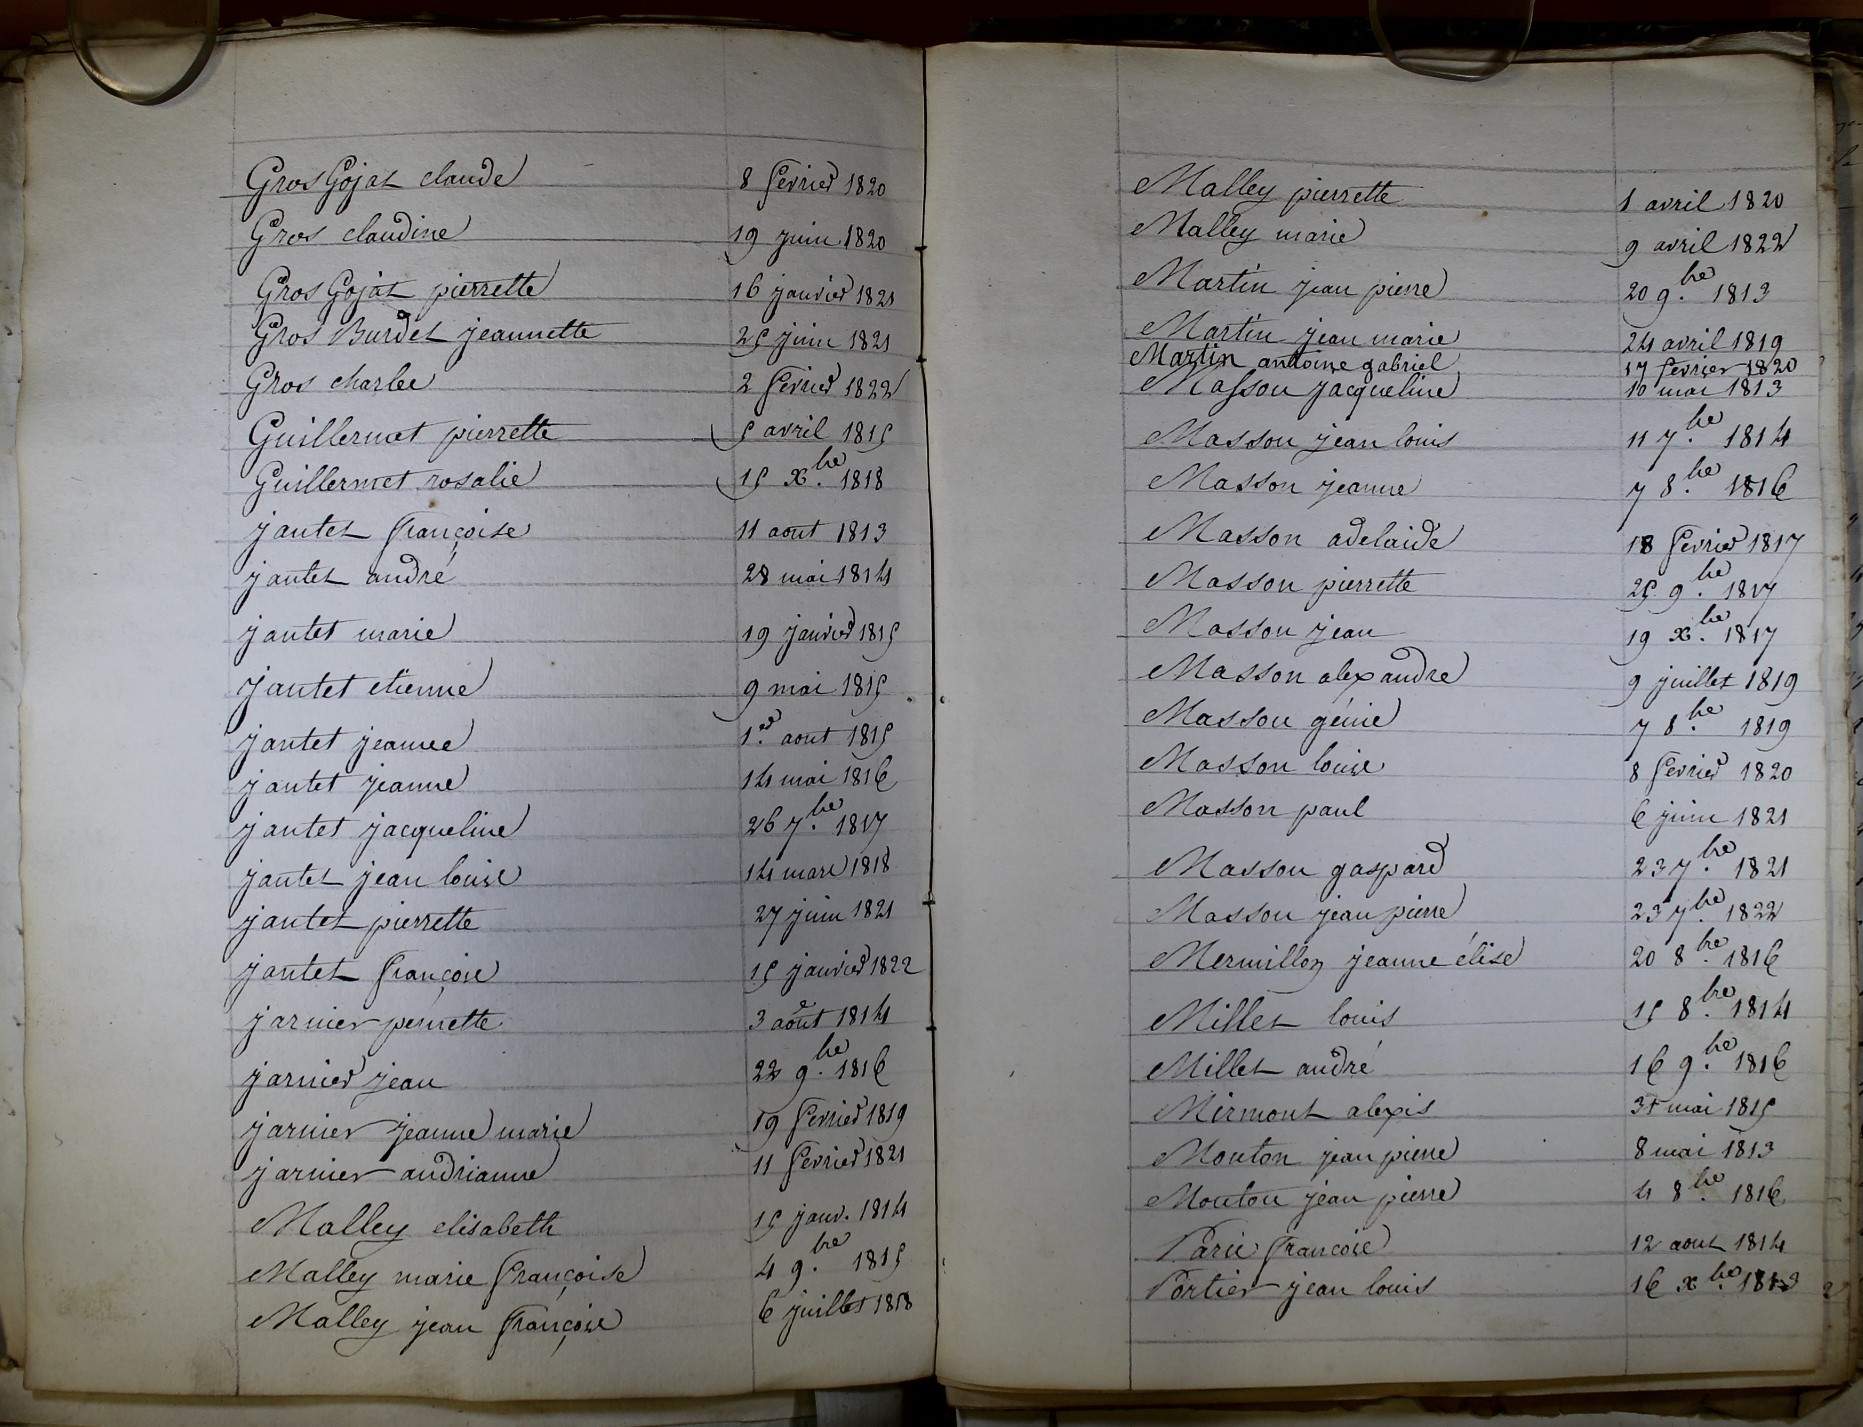 Gros Gojat claude 8 fevrier 1820
Gros claudine 19 juin 1820
Gros Gojat pierrette 16 janvier 1821
Gros Burdet jeannette 25 juin 1821
Gros charles 2 fevrier 1822
Guillermet pierrette 5 avril 1815
Guillermet rosalie 15 x.bre 1818
jantet françoise 11 aout 1813
jantet andré 28 mai 1814
jantet marie 19 janvier 1815
jantet etienne 9 mai 1815
jantet jeanne 1.er aout 1815
jantet jeanne 14 mai 1816
jantet jacqueline 26 7.bre 1817
jantet jean louis 14 mars 1818
jantet pierrette 27 juin 1821
jantet françois 15 janvier 1822
jarnier pernette 3 août 1814
jarnier jean 22 9.bre 1816
jarnier jeanne marie 19 fevrier 1819
jarnier andrianne 11 fevrier 1821
Malley elisabeth 15 janv. 1814
Malley marie françoise 4 9.bre 1815
Malley jean françois 6 juillet 1818
Malley pierrette 1 avril 1820
Malley marie 9 avril 1822
Martin jean pierre 20 9.bre 1813
Martin jean marie 24 avril 1819
Martin antoine gabriel 17 fevrier 1820
Masson jacqueline 10 mai 1813
Masson jean louis 11 7.bre 1814
Masson jeanne 7 8.bre 1816
Masson adelaide 18 fevrier 1817
Masson pierrette 25 9.bre 1817
Masson jean 19 x.bre 1817
Masson alexandre 9 juillet 1819
Masson génie 7 8.bre 1819
Masson louise 8 fevrier 1820
Masson paul 6 juin 1821
Masson gaspard 23 7.bre 1821
Masson jean pierre 23 7.bre 1822
Mermillon jeanne élise 20 8.bre 1816
Millet louis 15 8.bre 1814
Millet andré 16 9.bre 1816
Mirmont alexis 31 mai 1815
Mouton jean pierre 8 mai 1813
Mouton jean pierre 4 8.bre 1816
Paris françois 12 aout 1814
Portier jean louis 16 x.bre 1813